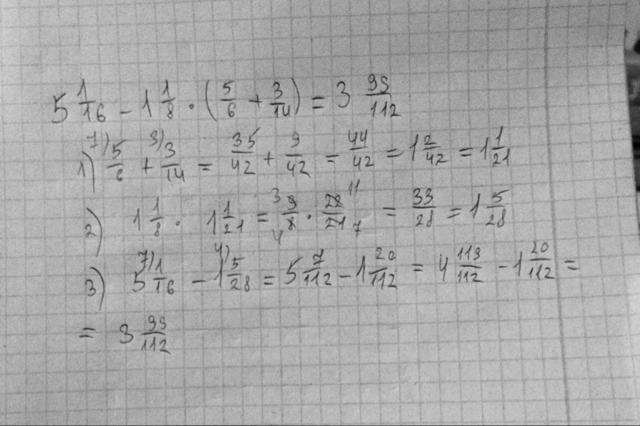 5 1/16 - 1 1/8 · (5/6 + 3/14) = 3 99/112
1) 7) 5/6 + 3) 3/14 = 35/42 + 9/42 = 44/42 = 1 2/42 = 1 1/21
2) 1 1/8 · 1 1/21 = 3 9/8 4 · 22/21 11 7 = 33/28 = 1 5/28
3) 5 7) 1/16 - 1 4) 5/28 = 5 7/112 - 1 20/112 = 4 119/112 - 1 20/112 =
= 3 99/112